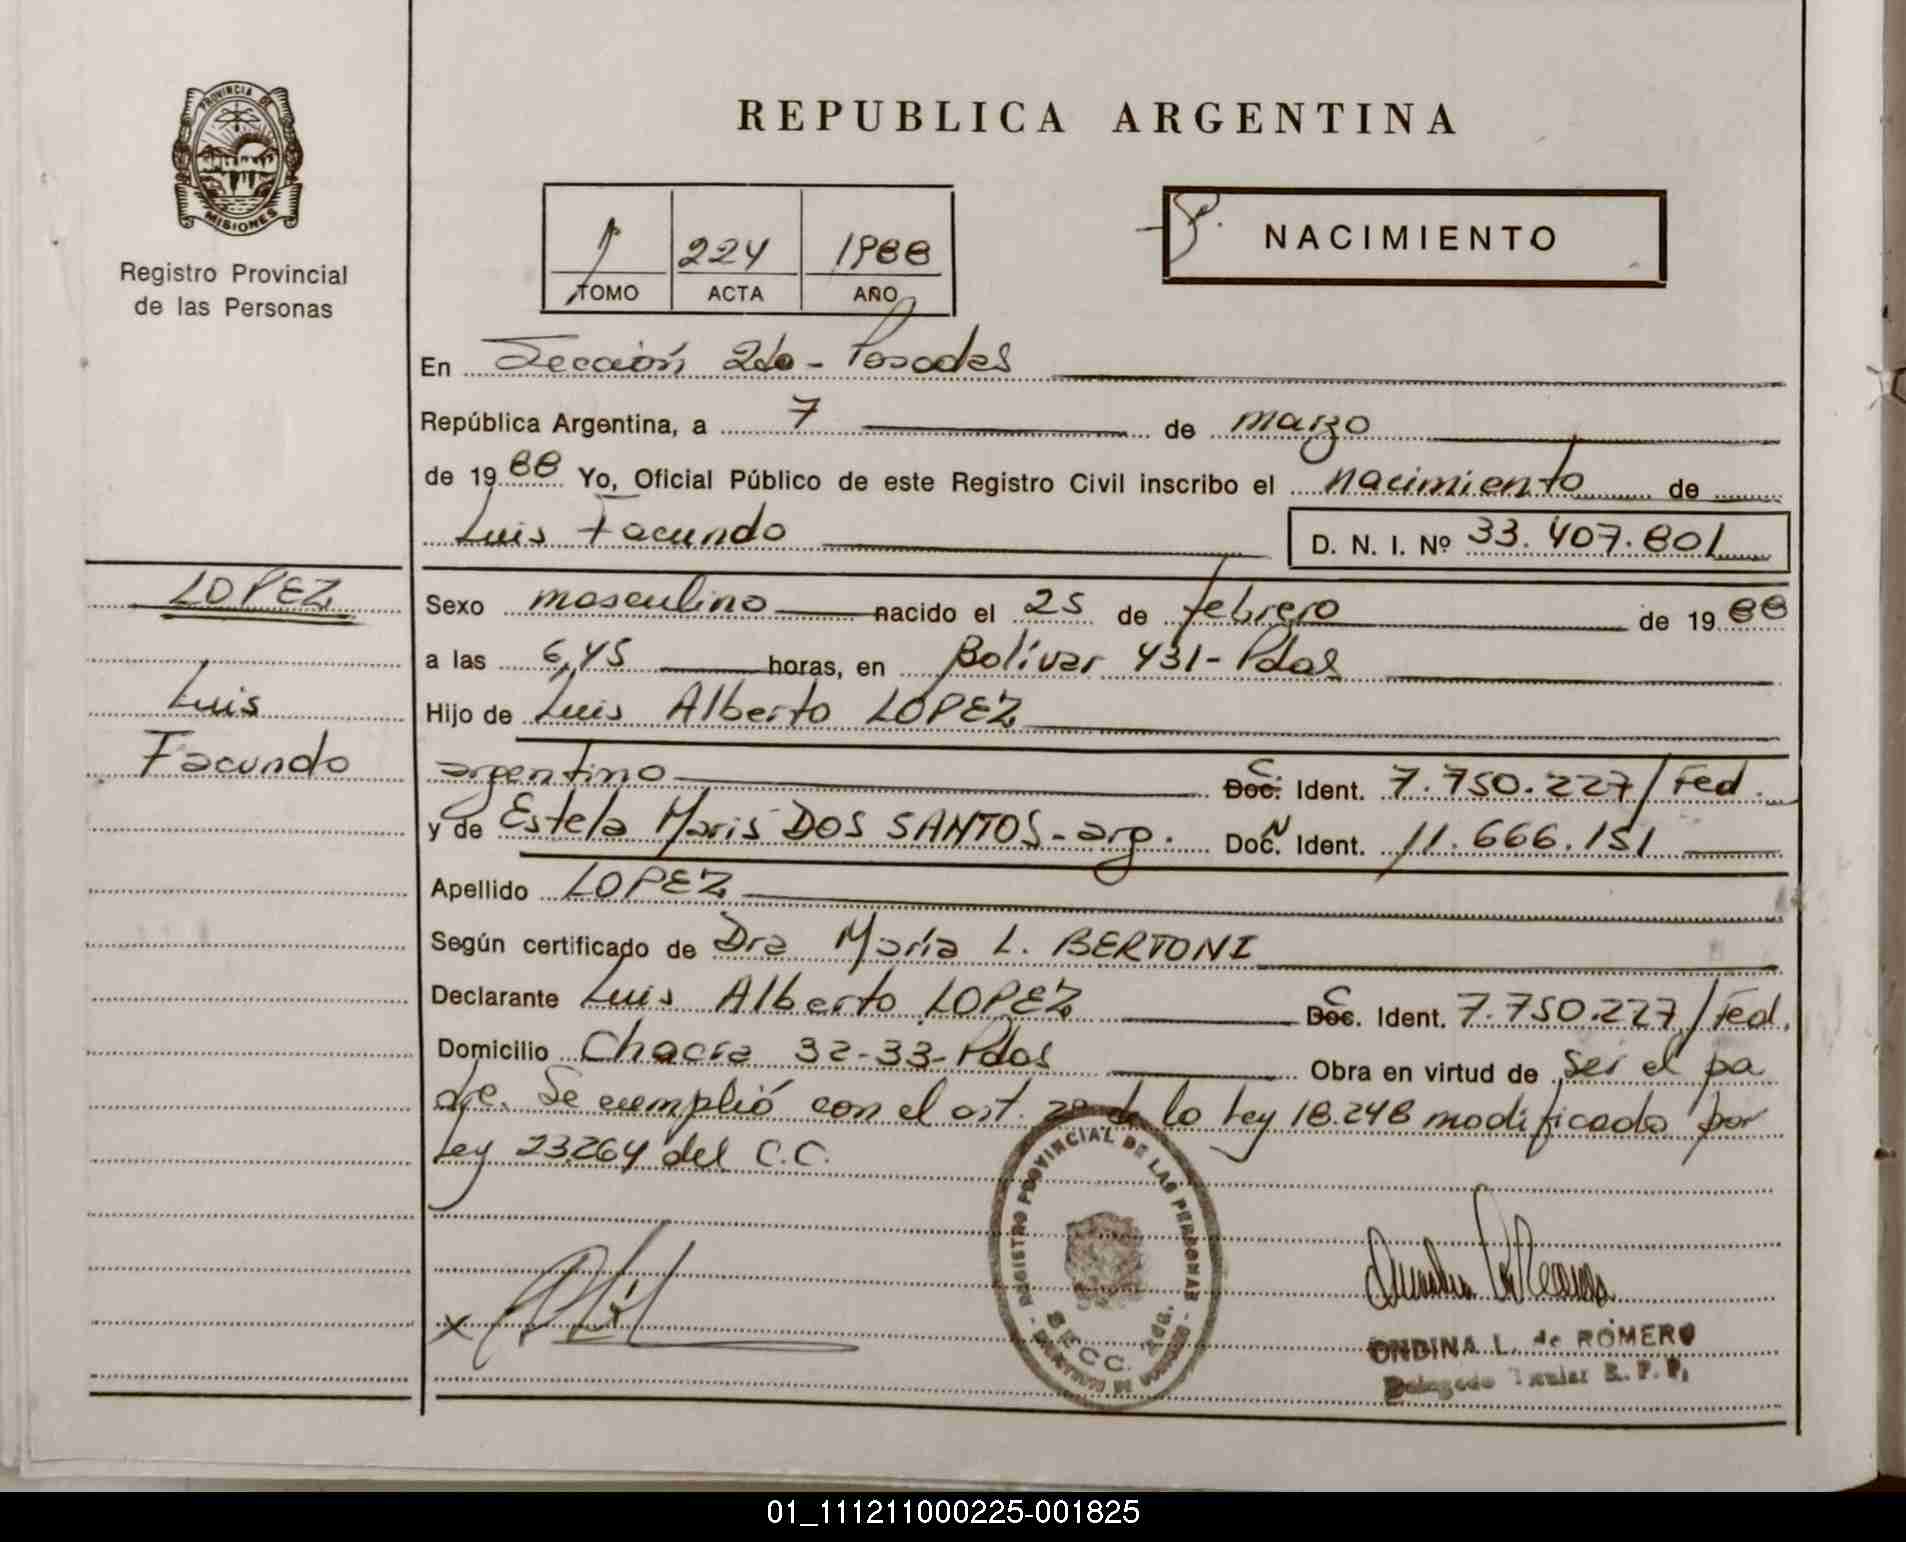 PROVINCIA DE
MISIONES
Registro Provincial
de las Personas
REPUBLICA ARGENTINA
1º 224 1988
TOMO ACTA AÑO
NACIMIENTO
En Sección 2da - Posadas
República Argentina, a 7 de marzo
de 1988 Yo, Oficial Público de este Registro Civil inscribo el nacimiento de
Luis Facundo D. N. I. Nº 33.407.801
LOPEZ
Luis
Facundo
Sexo masculino nacido el 25 de febrero de 1988
a las 6,45 horas, en Bolívar 431-Pdas
Hijo de Luis Alberto LOPEZ
argentino C. Doc. Ident. 7.750.227/Fed.
y de Estela Maris DOS SANTOS - arg. Doc. N Ident. 11.666.151
Apellido LOPEZ
Según certificado de Dra María L. BERTONI
Declarante Luis Alberto LOPEZ C Doc. Ident. 7.750.227/Fed.
Domicilio Chacra 32-33-Pdas Obra en virtud de ser el pa
dre. Se cumplió con el art. 2º de la Ley 18.248 modificada por
Ley 23264 del C.C.
REGISTRO PROVINCIAL DE LAS PERSONAS
SECC. 2da.
X
ONDINA L. de ROMERO
Delegado Titular R. P. P.
01_111211000225-001825